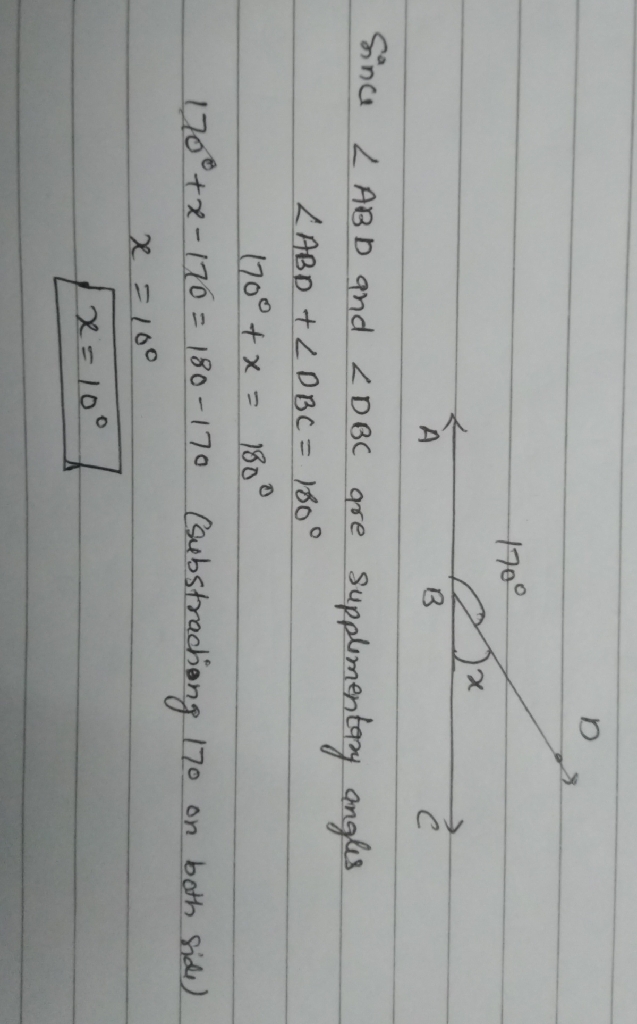 D
170°
x
A B C
Since ∠ABD and ∠DBC are supplimentary angles
∠ABD + ∠DBC = 180°
170° + x = 180°
170° + x - 170 = 180 - 170 (substractiong 170 on both side)
x = 10°
x = 10°